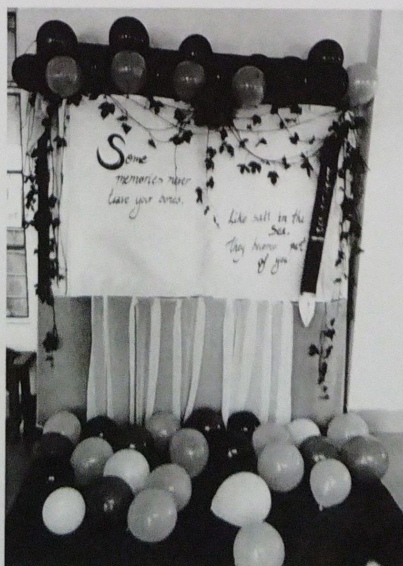 Some
memories never
leave your bones.
Like salt in the
sea.
They become part
of you